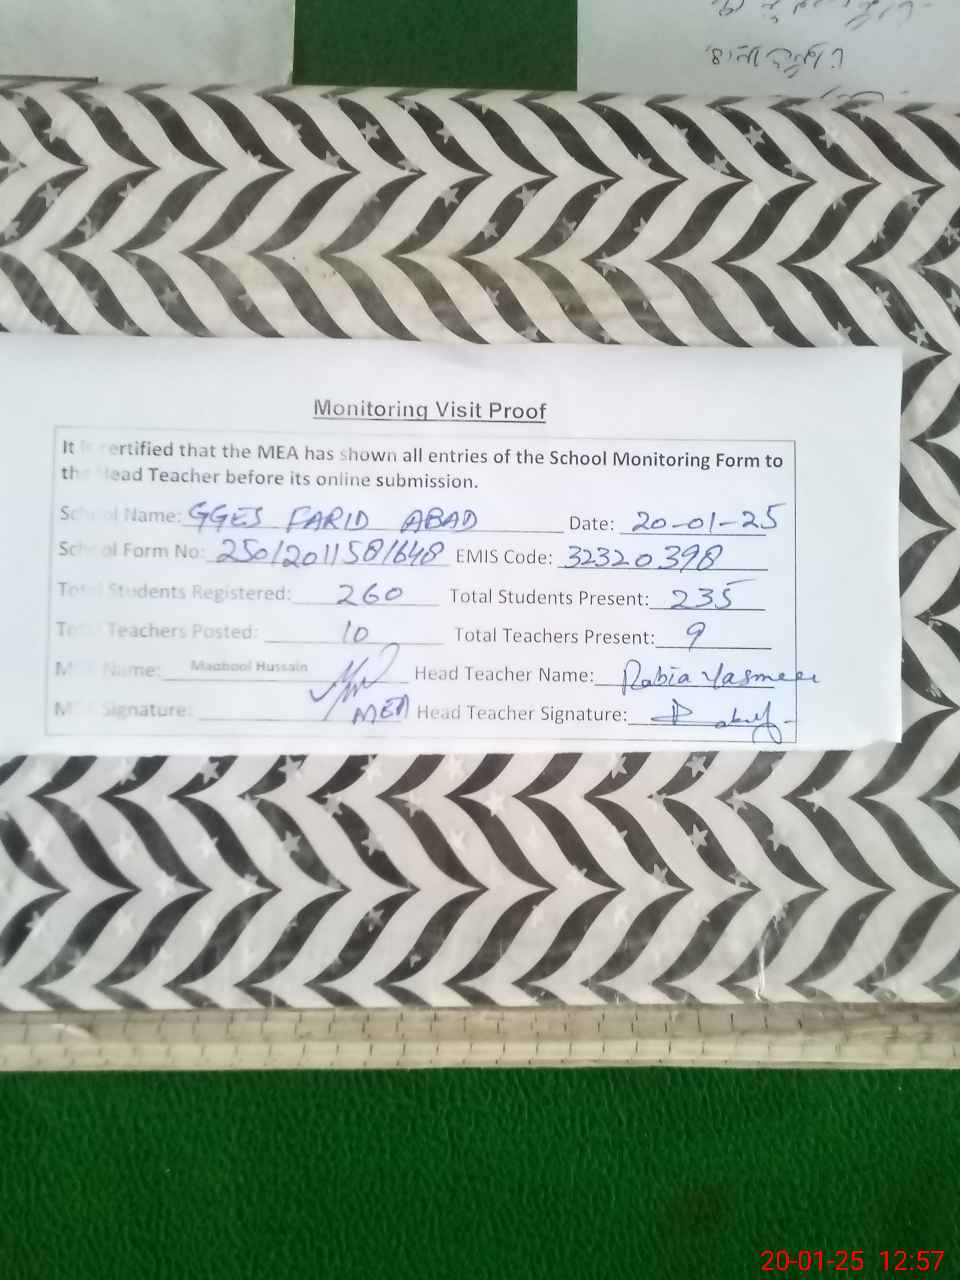 Monitoring Visit Proof
It is certified that the MEA has shown all entries of the School Monitoring Form to
the Head Teacher before its online submission.
School Name: GGES FARID ABAD Date: 20-01-25
School Form No: 25012011581648 EMIS Code: 32320398
Total Students Registered: 260 Total Students Present: 235
Total Teachers Posted: 10 Total Teachers Present: 9
MEA Name: Maqbool Hussain Head Teacher Name: Rabia Yasmeen
MEA Signature: MEA Head Teacher Signature:
20-01-25 12:57